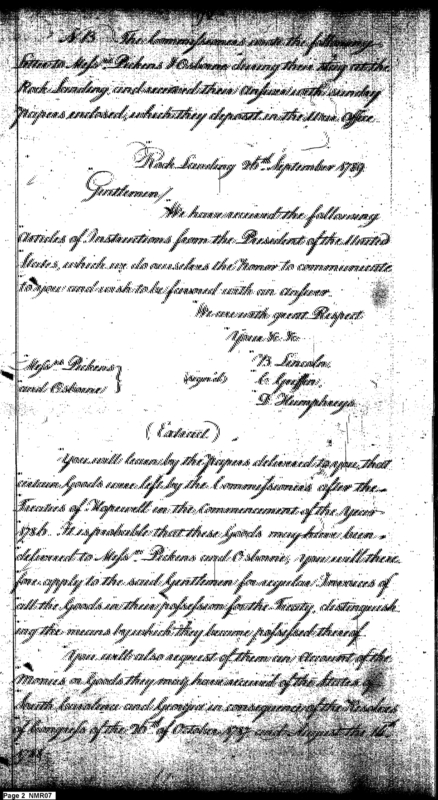 N.B. The Commissioners wrote the following
letter to Mess.rs Pickens & Osborne during their stay at the
Rock Landing, and received their Answer with sundry
papers enclosed, which they deposit in the War Office.
Rock Landing 26th September 1789
Gentlemen/
We have received the following
Articles of Instructions from the President of the United
States, which we do ourselves the honor to communicate
to you and wish to be favored with an answer.
We are with great Respect
Your &c. &c.
Mess.rs Pickens
and Osborne }
(sign'd)
B. Lincoln,
C. Griffin,
D. Humphreys.
(Extract)
You will learn by the papers delivered to you, that
certain Goods were left by the Commissioners after the
Treaties of Hopewell in the Commencement of the Year
1786. It is probable that these Goods may have been
delivered to Mess.rs Pickens and Osborne, you will there
fore apply to the said Gentlemen for regular Invoices of
all the Goods in their possession for the Treaty, distinguish
ing the means by which they became possessed thereof.
You will also request of them an Account of the
Monies or Goods they may have received of the States of
South Carolina and Georgia in consequence of the Resolves
of Congress of the 26th of October 1787 and August the 14th
1788
Page 2 NMR07